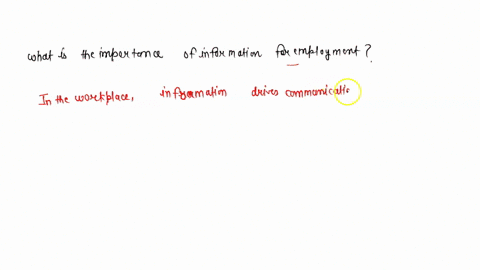 what is the importance of information for employment?
In the workplace, information drives communicatio